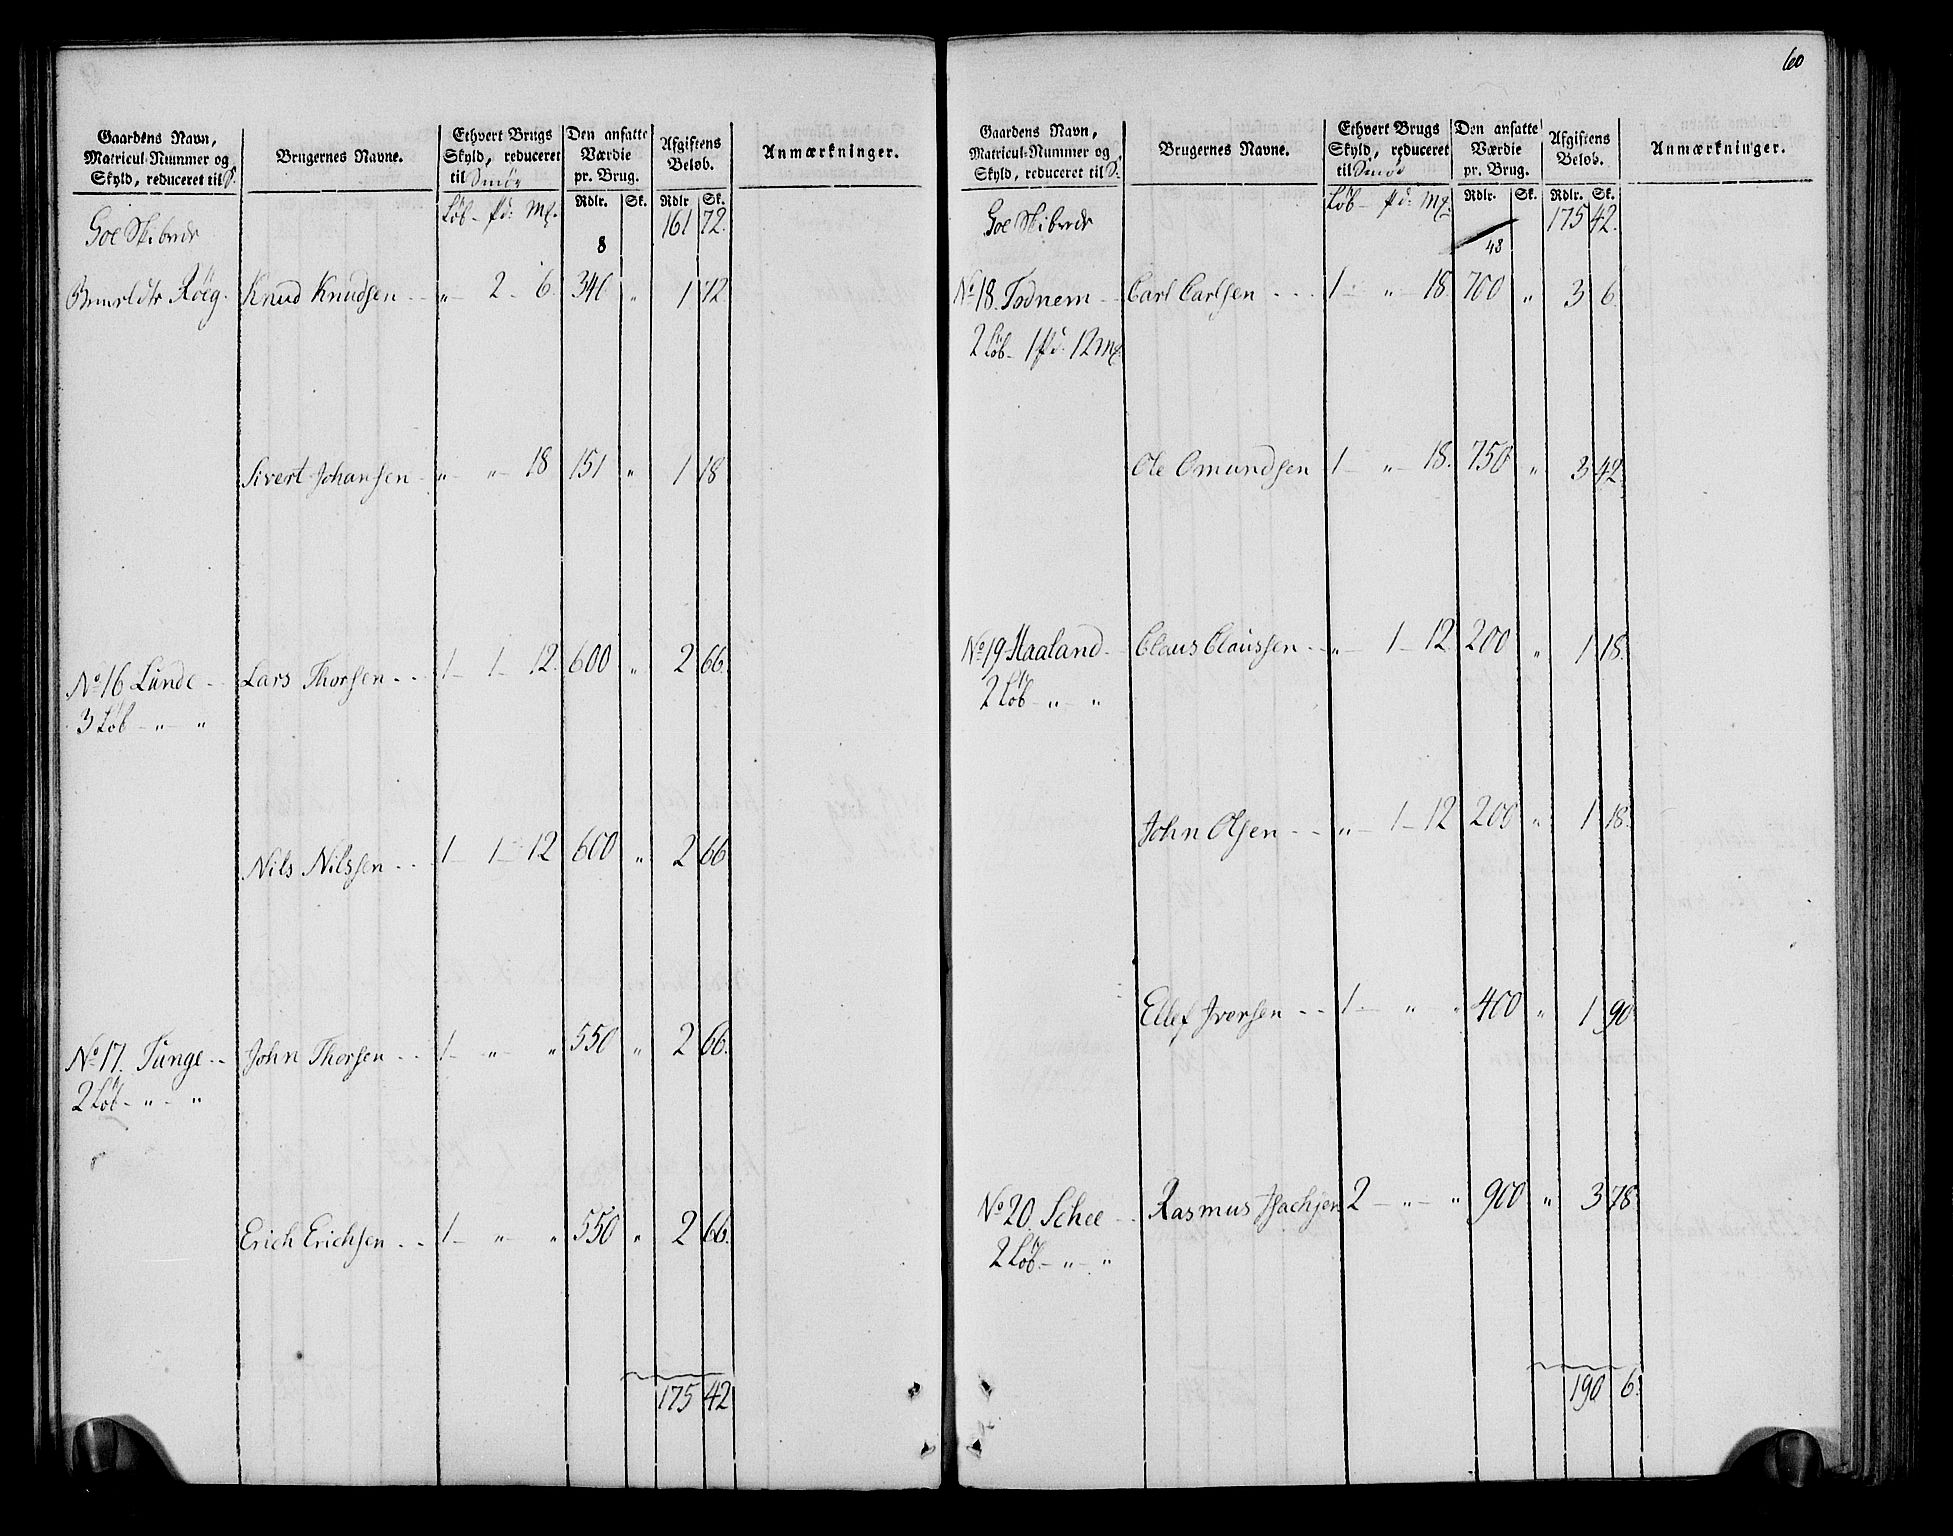 60
Gaardens Navn, Matricul-Nummer og Skyld, reduceret til S. | Brugernes Navne. | Ethvert Brugs Skyld, reduceret til Smør | Den ansatte Værdie pr. Brug. | Afgiftens Beløb. | Anmærkninger.
Løb - pd: Mk. | Rdlr. | Sk. | Rdlr | Sk.
Goe Skibrede 161 72.
8
Røeg. Knud Knudsen - - „ - 2 - 6. 340 „ 1 72
Sivert Johansen - „ - „ - 18 151 „ 1 18
No 16 Lunde - Lars Thorsen - - 1 - 1 - 12. 600 „ 2 66.
3 Løb - „ - „
Nils Nilssen - - 1 - 1 - 12 600 „ 2 66
No 17. Tunge - - John Thorsen - - 1 - „ - „ 550 „ 2 66.
2 Løb - „ - „
Erich Erichsen - - 1 - „ - „ 550 „ 2 66.
175 42
Gaardens Navn, Matricul-Nummer og Skyld, reduceret til S. | Brugernes Navne. | Ethvert Brugs Skyld, reduceret til Smør | Den ansatte Værdie pr. Brug. | Afgiftens Beløb. | Anmærkninger.
Løb - pd: Mk. | Rdlr. | Sk. | Rdlr. | Sk.
Goe Skibrede 175 42.
48
No 18. Todnem - - Carl Carlsen - - - 1 - „ - 18. 700 „ 3 6.
2 Løb - 1 pd: 12 Mk.
Ole Omundsen 1 - „ - 18. 750 „ 3 42.
No 19 Haaland - Claus Claussen - - „ - 1 - 12 200 „ 1 18.
2 Løb - „ - „
John Olsen - - „ - 1 - 12 200 „ 1 18.
Ellef Iversen - - 1 - „ - „ 400 „ 1 90
No 20. Schee - - Rasmus Isachsen 2 - „ - „ 900 „ 3 78.
2 Løb - „ - „
190 6.